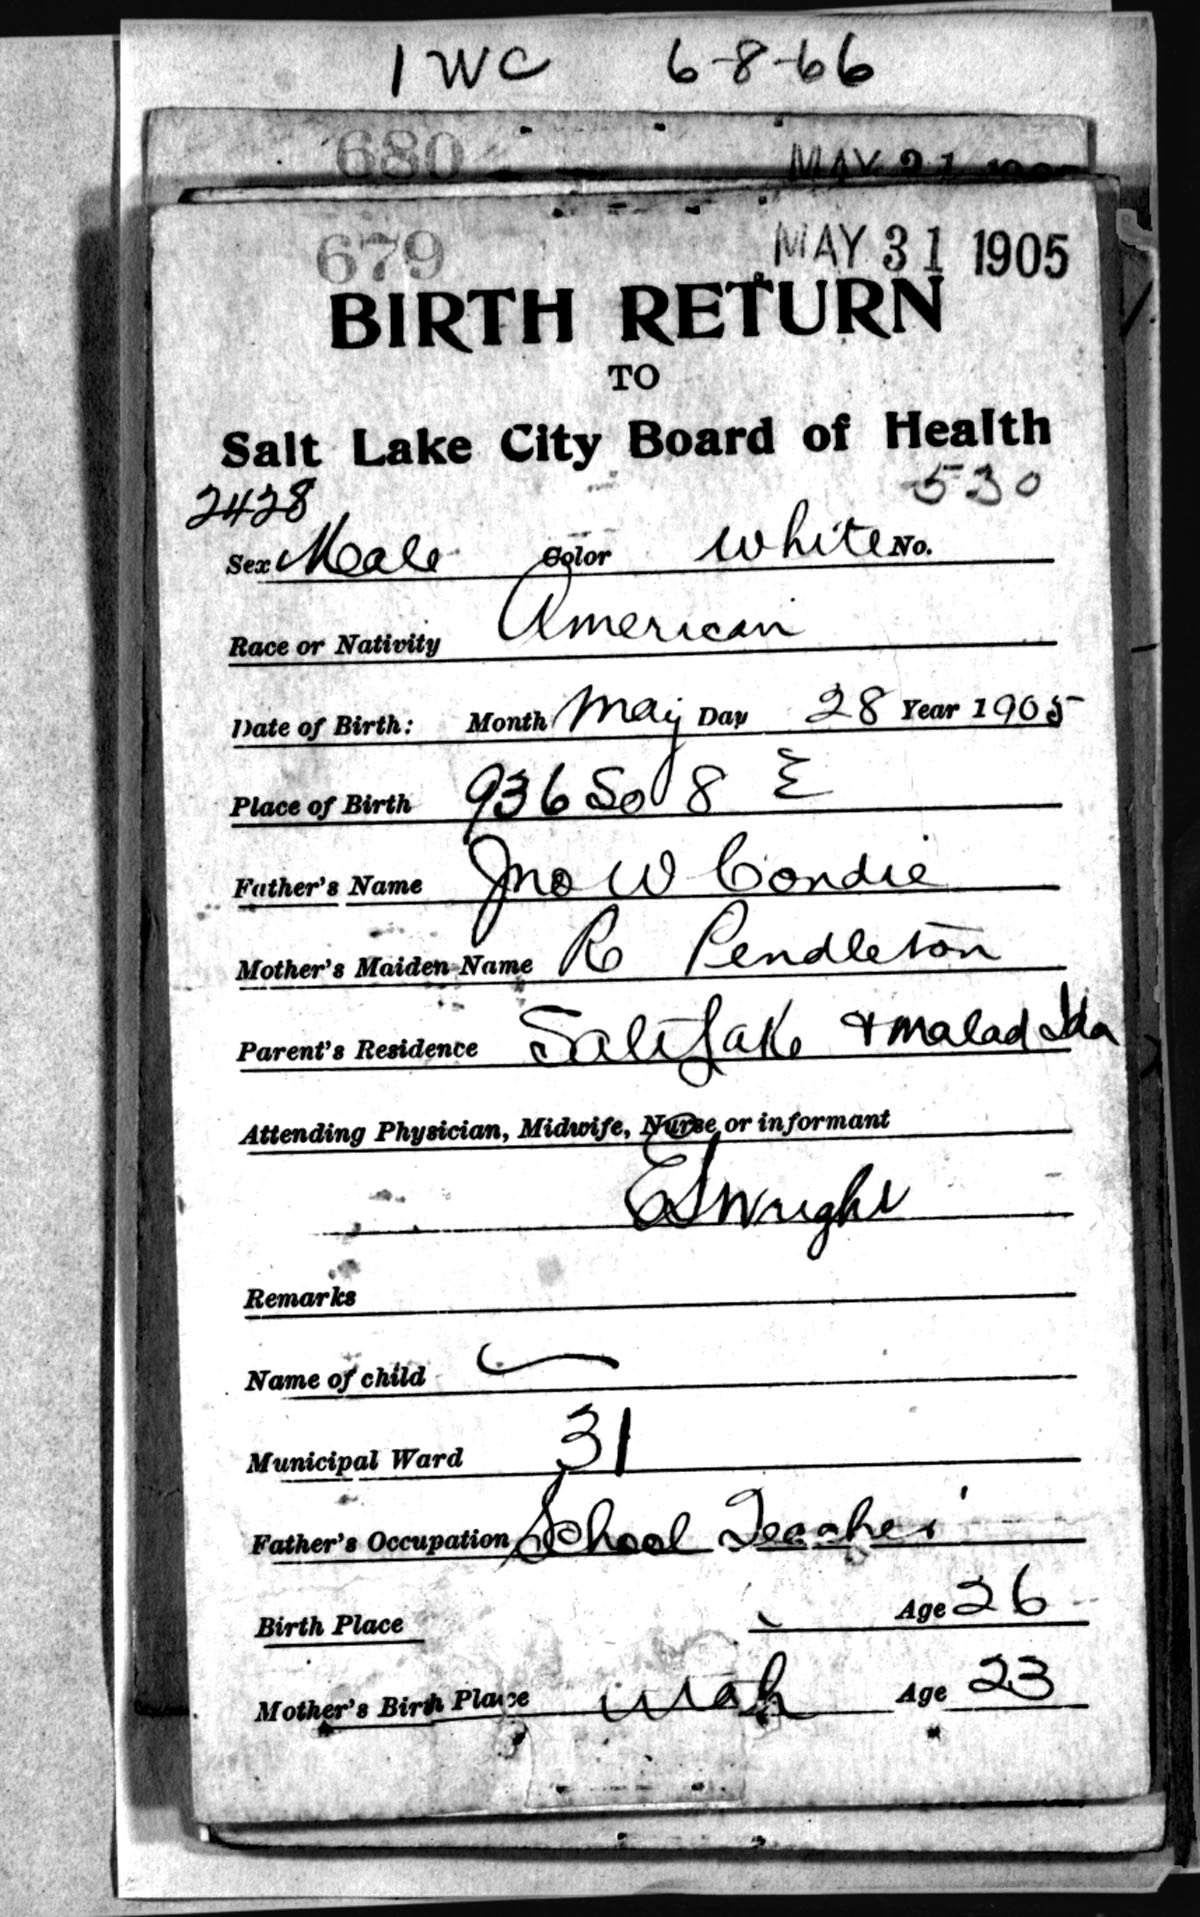 1 WC 6-8-66
680 MAY 31 1905
679 MAY 31 1905
BIRTH RETURN
TO
Salt Lake City Board of Health
2428 530
Sex Male Color White No.
Race or Nativity American
Date of Birth: Month May Day 28 Year 1905
Place of Birth 936 So 8 E
Father's Name Jno W Condie
Mother's Maiden Name R Pendleton
Parent's Residence Salt Lake & Malad Ida
Attending Physician, Midwife, Nurse or informant
E S Wright
Remarks
Name of child
Municipal Ward 31
Father's Occupation School Teacher
Birth Place Age 26
Mother's Birth Place Utah Age 23